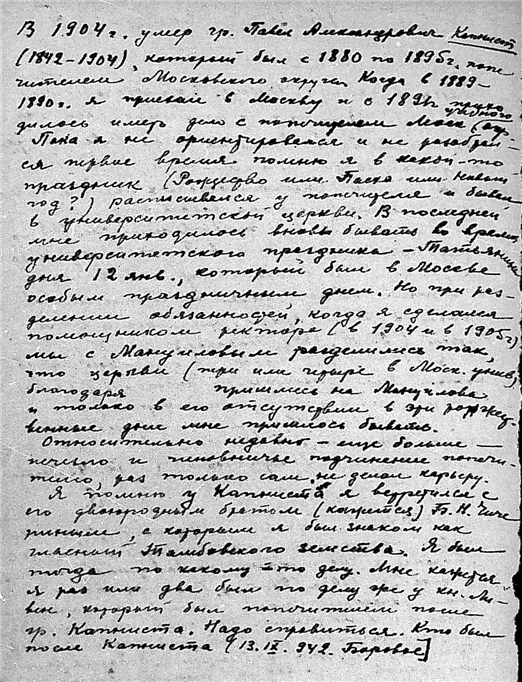 В 1904 г. умер гр. Павел Александрович Капнист
(1842–1904), который был с 1880 по 1895 г. попе-
чителем Московского округа. Когда в 1889–
1890 г. я приехал в Москву и с 1891 г. прихо
дилось иметь дело с попечителем Моск. учебного окр.
Пока я не ориентировался и не разобрал-
ся первое время помню я в какой-то
праздник (Рождество или Пасха или Новый
год?) расписывался у попечителя и бывал
в университетской церкви. В последней
мне приходилось вновь бывать во время
университетского праздника – Татьянина
дня 12 янв., который был в Москве
особым праздничным днем. Но при раз-
делении обязанностей, когда я сделался
помощником ректора (в 1904 и в 1905 г.)
мы с Мануиловым разделились так,
что церкви (три или четыре в Моск. унив.)
благодаря пришлись на Мануилова
и только в его отсутствии в эти торжес-
венные дни мне пришлось бывать.
Относительно недавно – еще больше –
и чиновничье подчинение попечи-
телю, раз только сам не делал карьеру.
Я помню у Капниста я встретился с
его двоюродным братом (кажется) Б. Н. Чиче
риным, с которым я был знаком как
гласный Тамбовского земства. Я был
тогда по какому-то делу. Мне кажется
я раз или два был по делу же у кн. Ли-
вен, который был попечителем после
гр. Капниста. Надо справиться. Кто был
после Капниста (13.IX.942. Боровое]